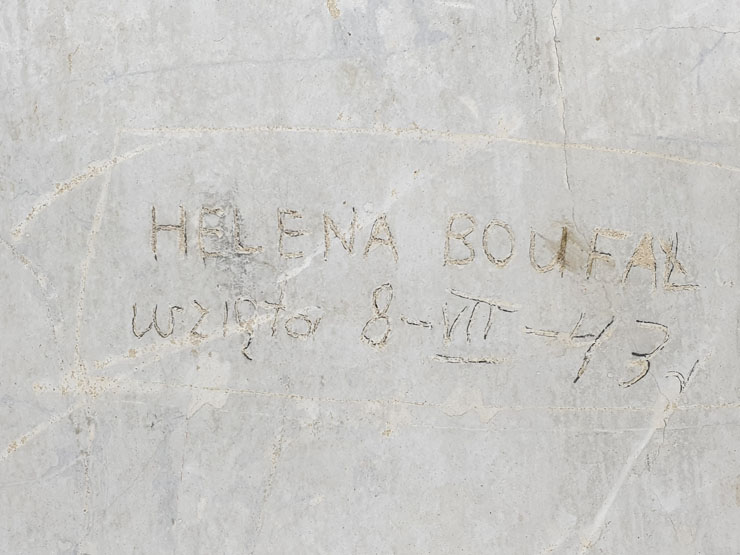 HELENA BOUFAŁ
wzięta 8-VII-43r